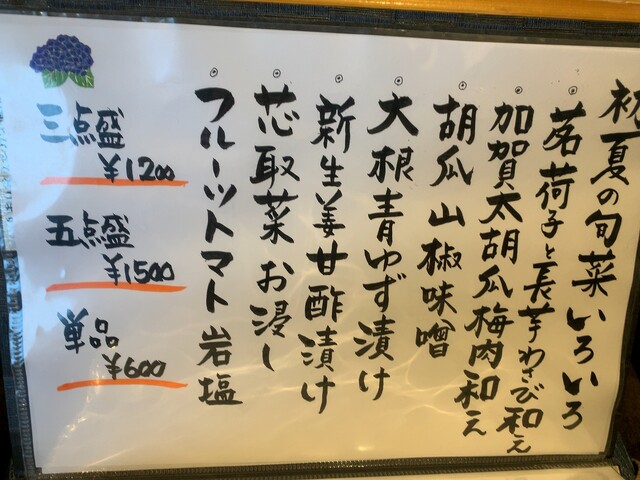 初夏の旬菜いろいろ
◎茗荷子と長芋わさび和え
◎加賀太胡瓜梅肉和え
◎胡瓜山椒味噌
◎大根青ゆず漬け
◎新生姜甘酢漬け
◎芯取菜お浸し
◎フルーツトマト岩塩
三点盛
¥1200
五点盛
¥1500
単品
¥600